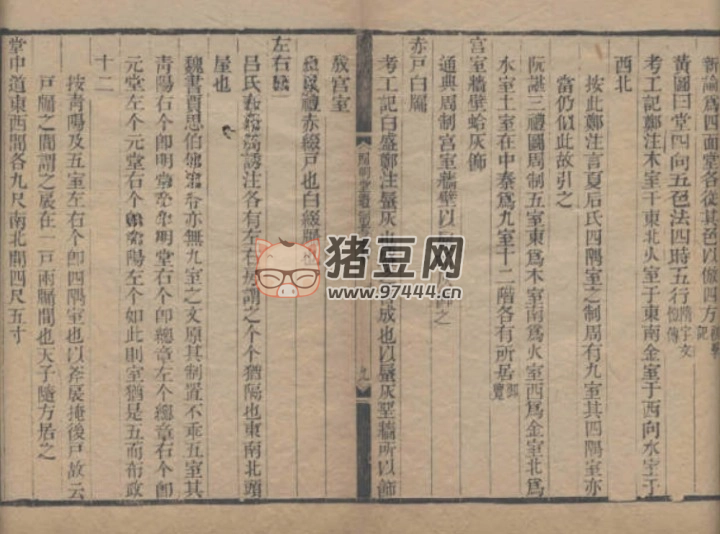 新論爲四面堂各從其色以倣四方
黃圖曰堂四向五色法四時五行隋宇文愷傳
考工記鄭注木室于東北火室于東南金室于西向水室于
西北
按此鄭注言夏后氏四隅室之制周有九室其四隅室亦
當仍似此故引之
阮諶三禮圖周制五室東爲木室南爲火室西爲金室北爲
水室土室在中秦爲九室十二階各有所居御覽
宮室牆壁蛤灰飾
通典周制宮室牆壁以
赤戶白牖
考工記白盛鄭注蜃灰也 成也以蜃灰堊牆所以飾
故宮室
禮赤綴戶也白綴牖
左右
呂氏春秋高誘注各有左右房謂之个个猶隔也東南北頭
屋也
魏書賈思伯傳 亦無九室之文原其制置不乖五室其
靑陽右个卽明堂左个明堂右个卽總章左个總章右个卽
元堂左个元堂右个卽靑陽左个如此則室猶是五而布政
十二
按靑陽及五室左右个卽四隅室也以斧扆掩後戶故云
戶牖之間謂之扆在一戶兩牖間也天子隨方居之
堂中道東西間各九尺南北間四尺五寸
九
猪豆网
www.97444.cn